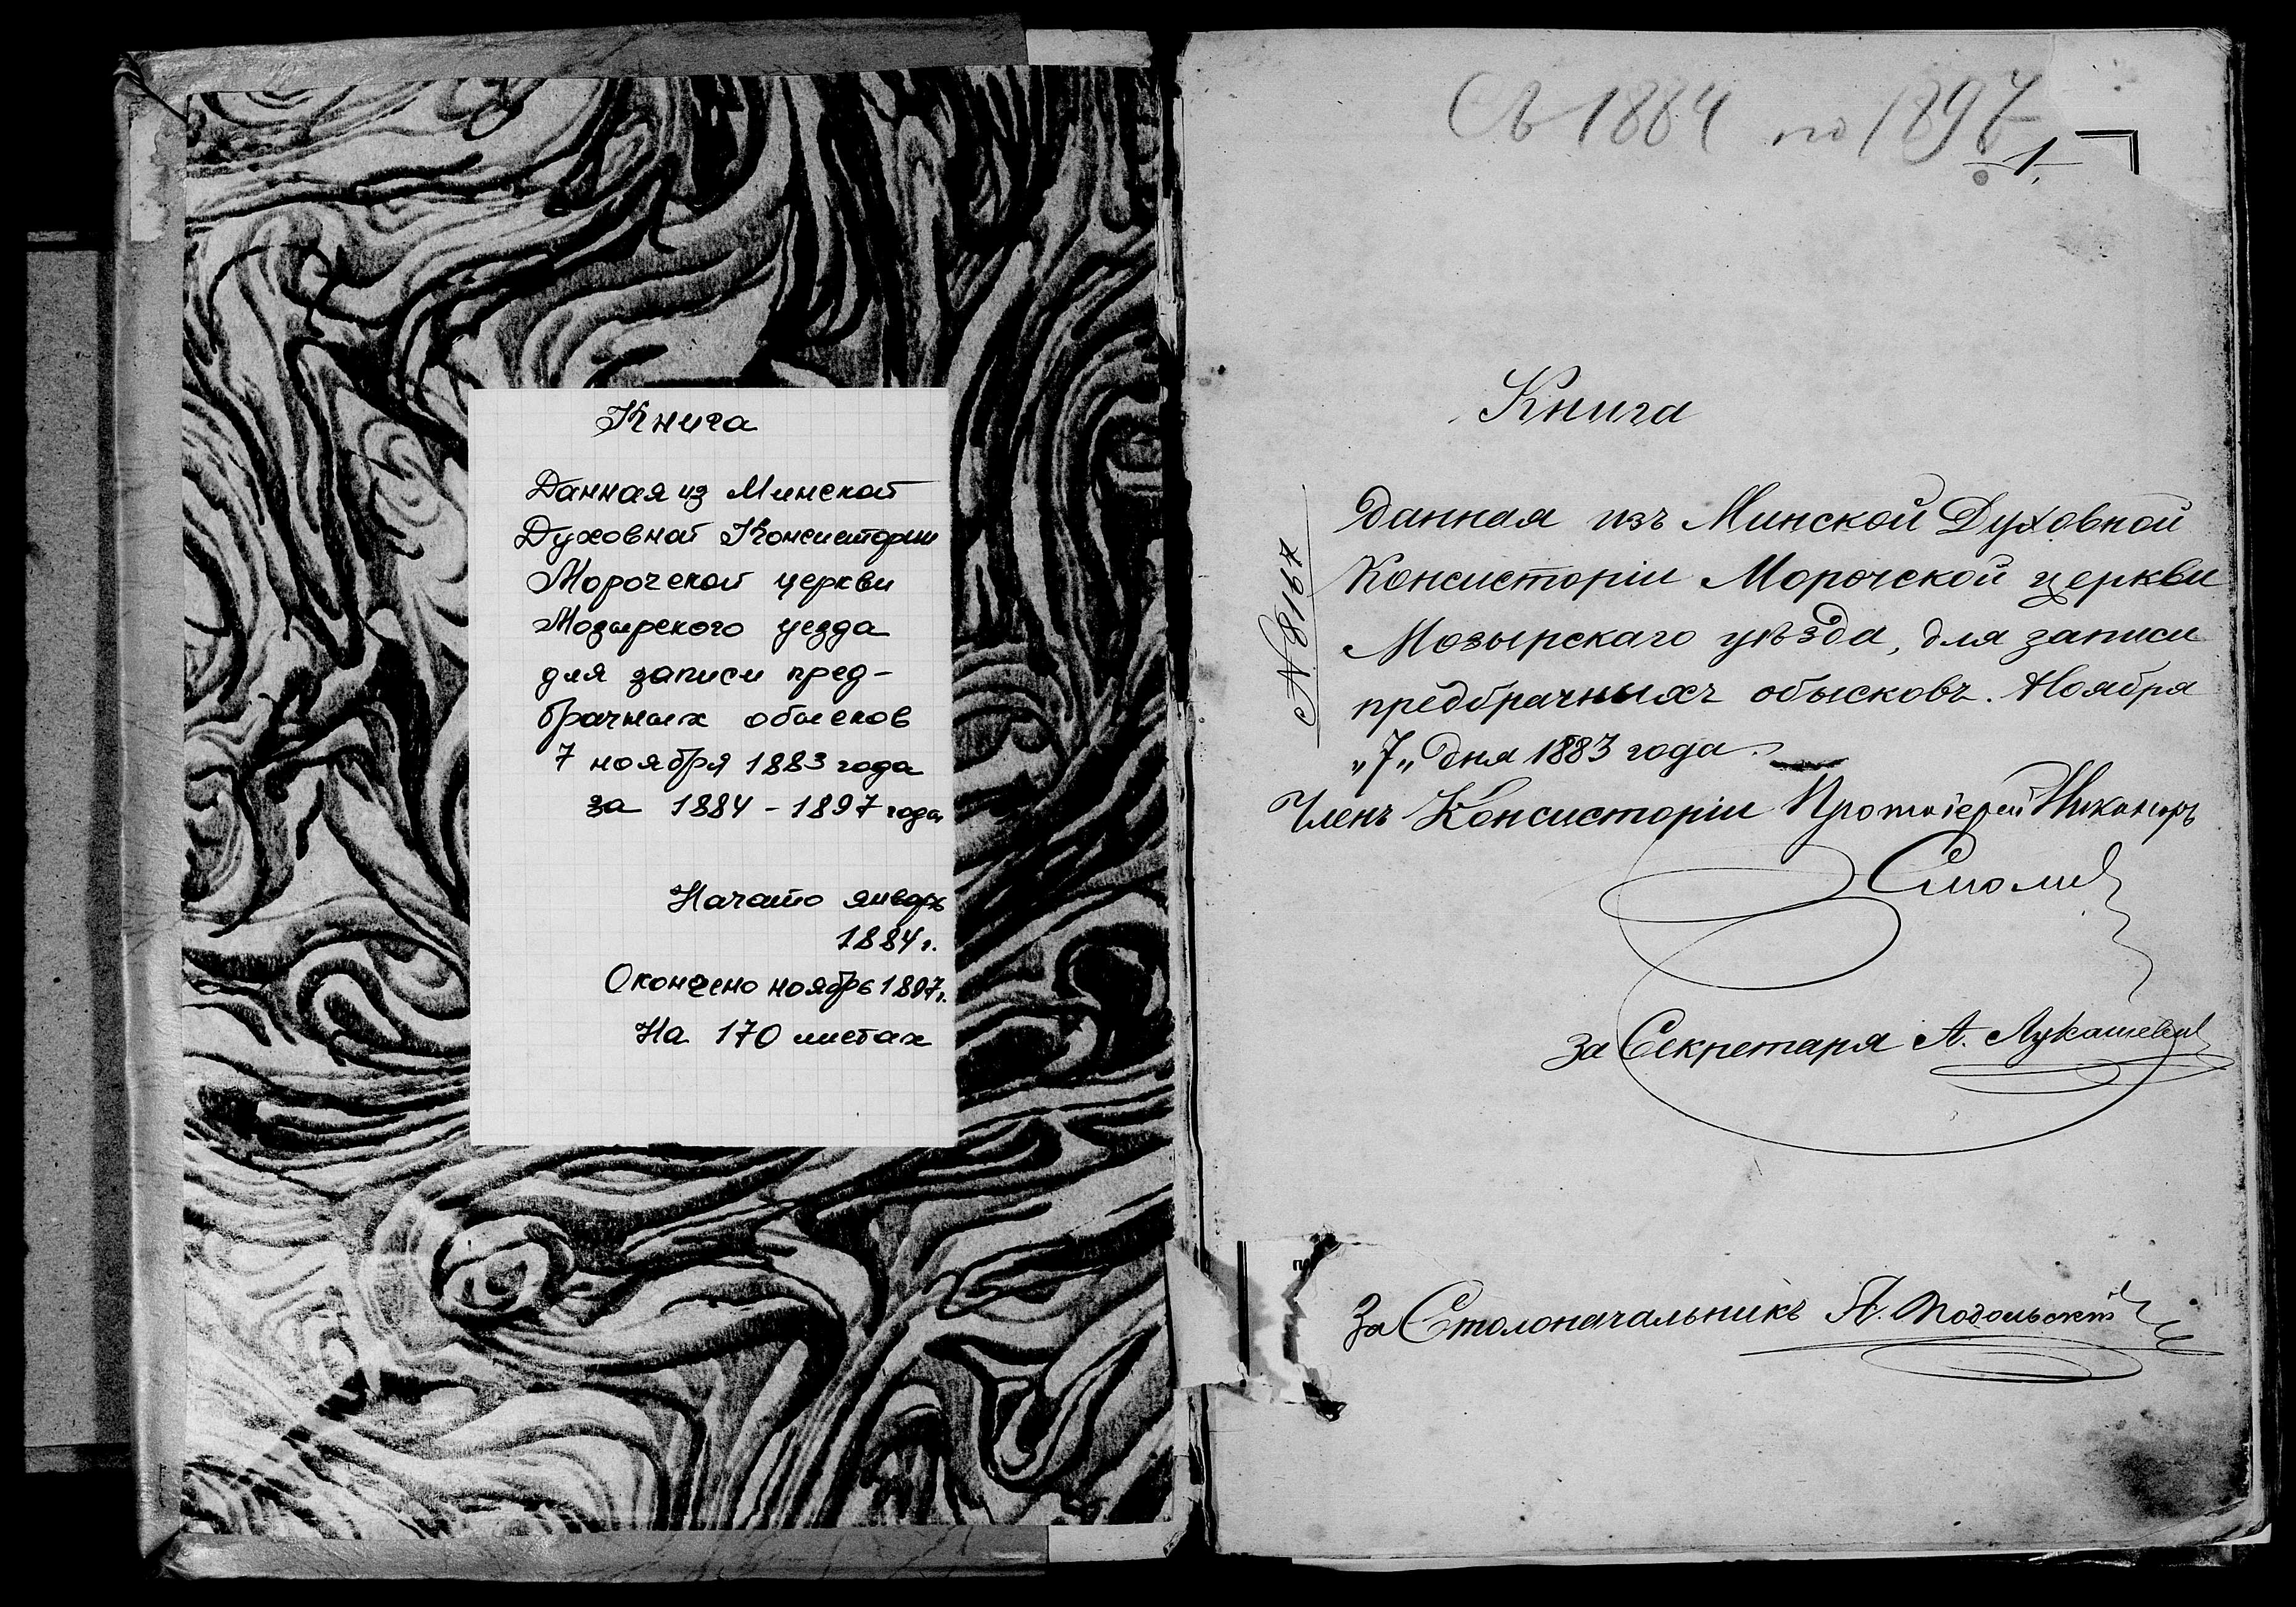 Книга
Данная из Минской
Духовной Консистории
Морочской церкви
Мозырского уезда
для записи пред-
брачных обысков
7 ноября 1883 года
за 1884 - 1897 года
Начато январь
1884 г.
Окончено ноябрь 1897 г.
На 170 листах
Съ 1884 по 1897
1.
Книга
№ 8167
данная изъ Минской Духовной
Консисторіи Морочской церкви
Мозырскаго уѣзда, для записи
предбрачныхъ обысковъ. Ноября
„7„ дня 1883 года.
Членъ Консисторіи Протоіерей Никаноръ
Смолич
За Секретаря А. Лукашевич
За Столоначальникъ А. Подольскій